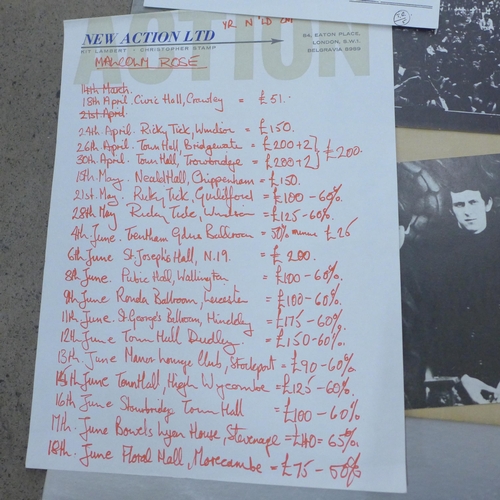 ACTION
NEW ACTION LTD
KIT LAMBERT · CHRISTOPHER STAMP
84, EATON PLACE,
LONDON, S.W.1.
BELGRAVIA 8989
MALCOLM ROSE
14th March.
18th April. Civic Hall, Crawley = £51.
21st April.
24th April. Ricky Tick, Windsor = £150.
26th April. Town Hall, Bridgewater = £200+2
30th April. Town Hall, Trowbridge = £200+2 } £200.
15th May. Neald Hall, Chippenham = £150.
21st May. Ricky Tick, Guildford = £100-60%.
28th May Ricky Tick, Windsor = £125-60%.
4th June. Trentham Gdns Ballroom = 50% minus £25
6th June St. Joseph's Hall, N.19. = £200.
8th June. Public Hall, Wallington = £100-60%.
9th June Ronda Ballroom, Leicester = £100-60%.
11th June. St. George's Ballroom, Hinckley = £175-60%.
12th June Town Hall Dudley. = £150-60%.
13th June Manor Lounge Club, Stockport = £90-60%
15th June Town Hall, High Wycombe = £125-60%.
16th June Stourbridge Town Hall = £100-60%
17th June Bowes Lyon House, Stevenage = £140 = 65%.
18th June Floral Hall, Morecambe = £75-50%